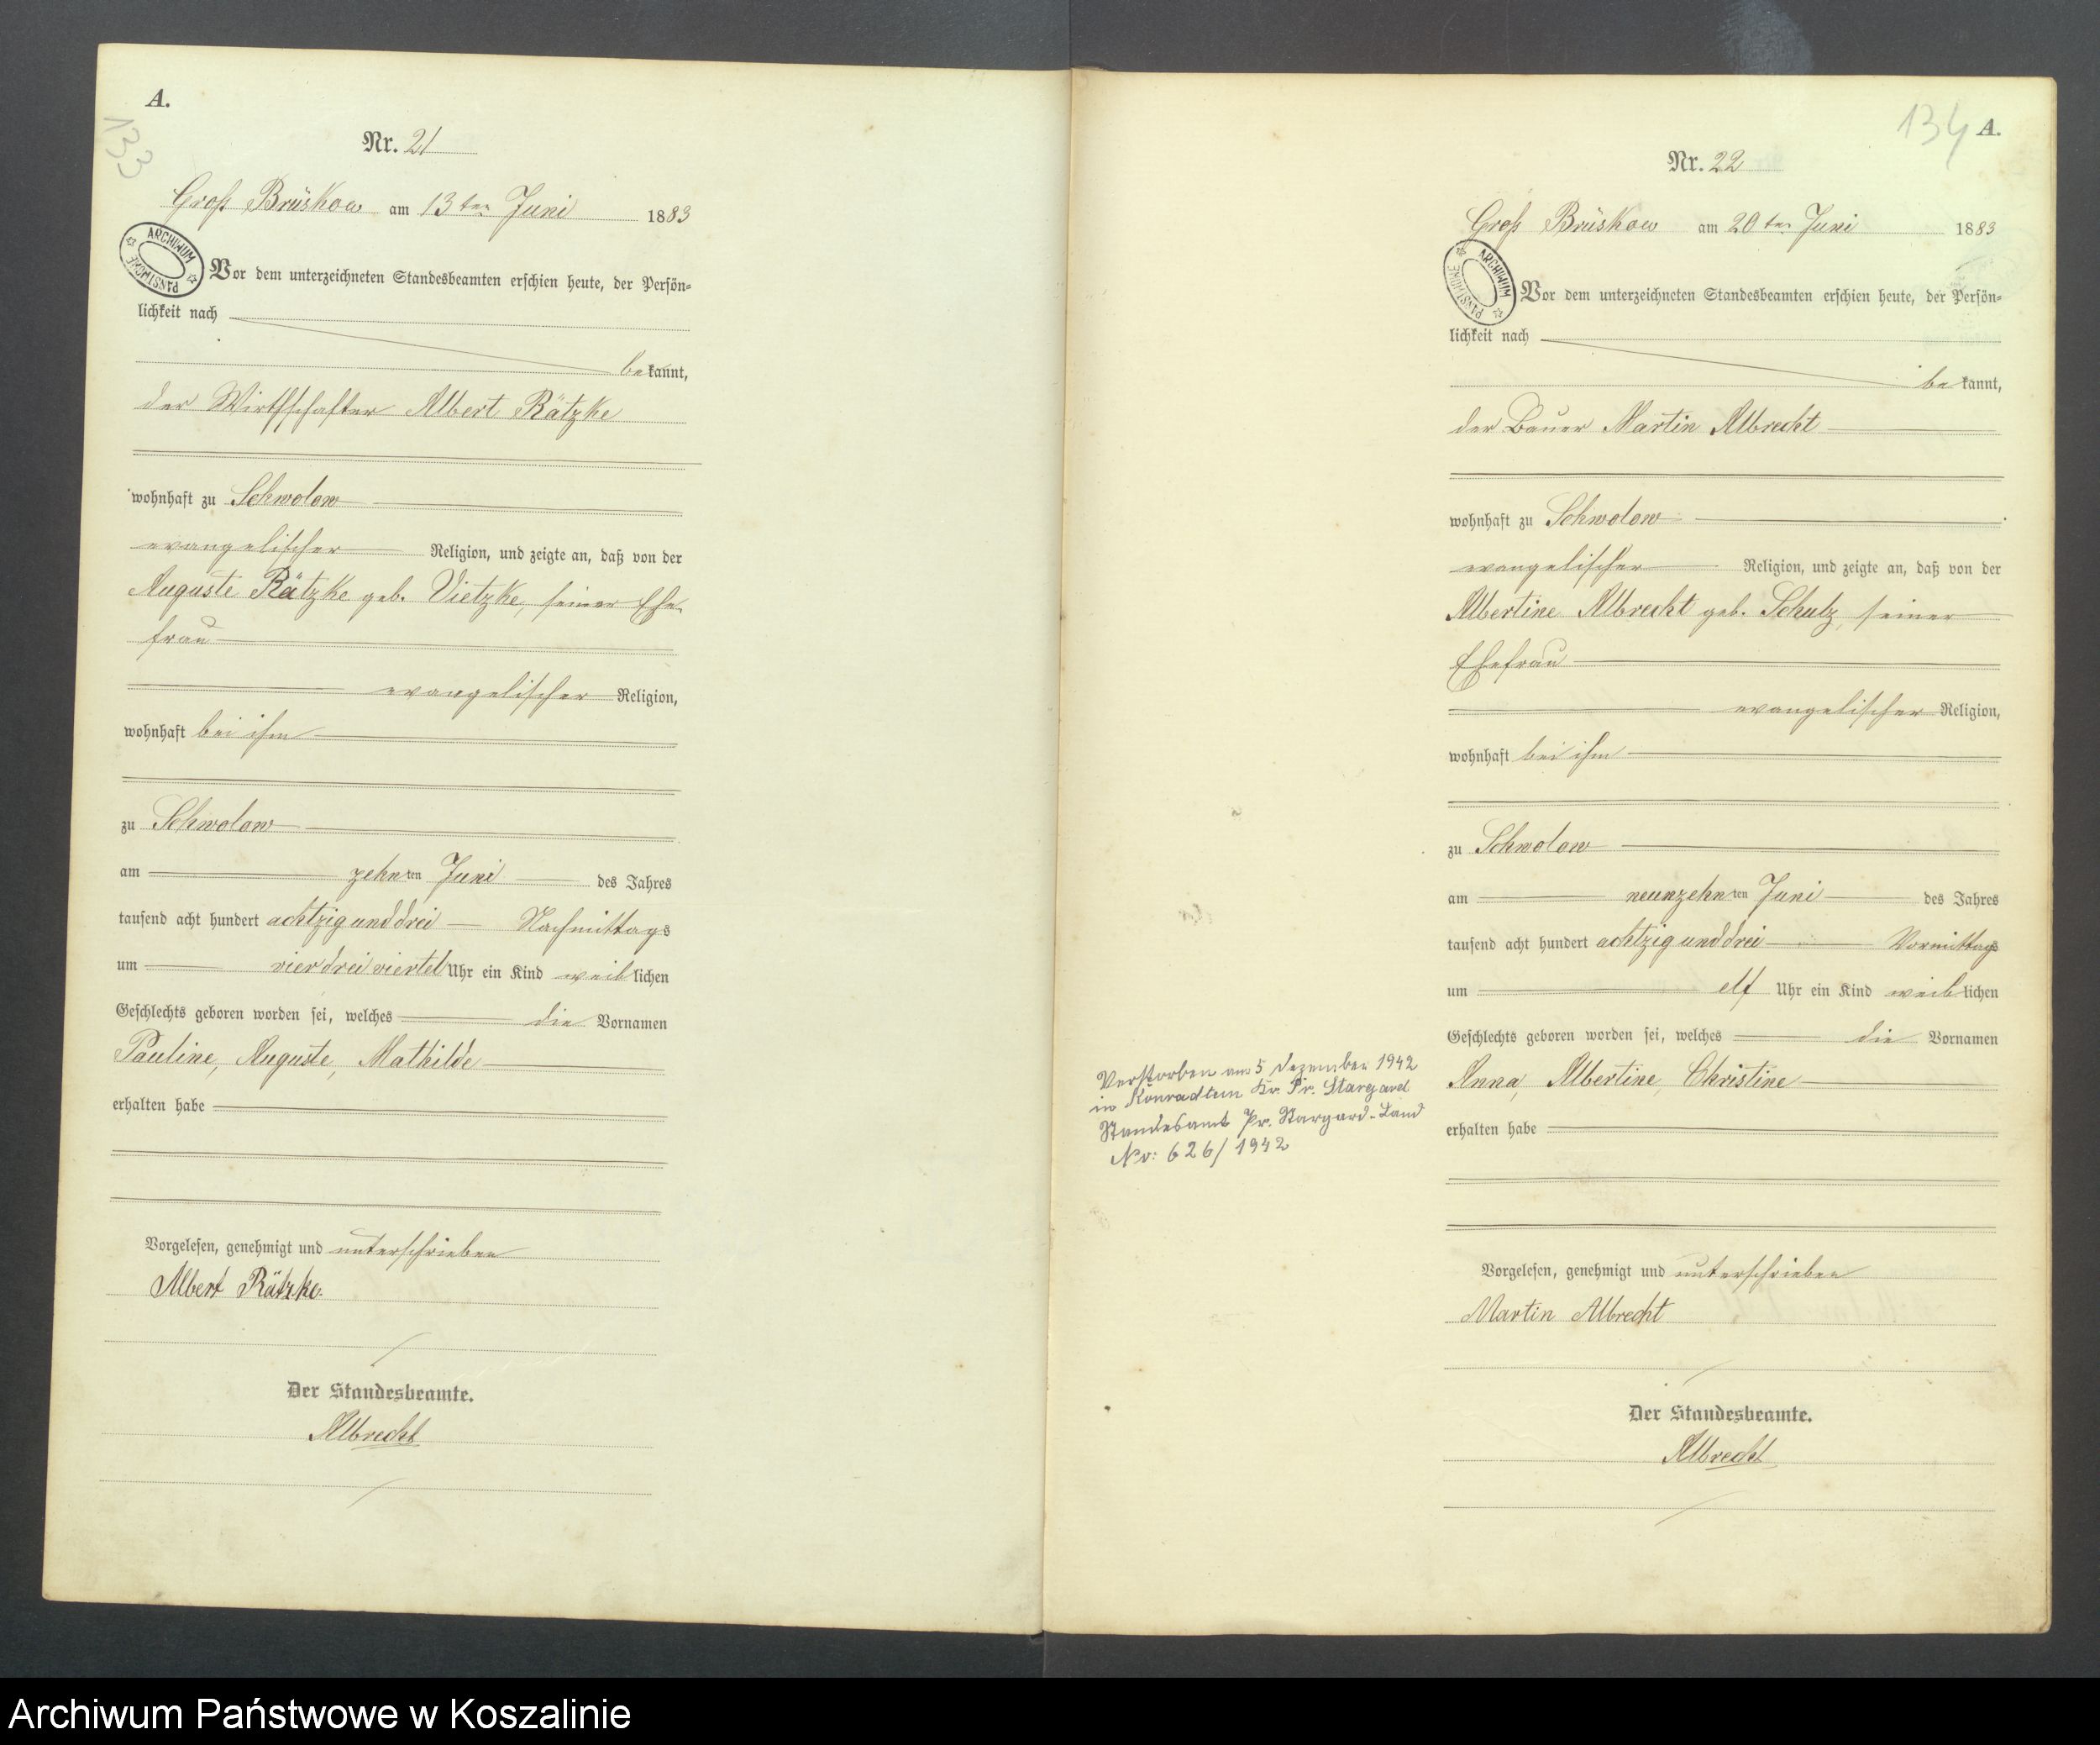 A.
133
Nr. 21
Groß Brüskow am 13ten Juni 1883
ARCHIWUM PAŃSTWOWE
Vor dem unterzeichneten Standesbeamten erschien heute, der Persön-
lichkeit nach
bekannt,
der Wirthschafter Albert Rätzke
wohnhaft zu Schwolow
evangelischer Religion, und zeigte an, daß von der
Auguste Rätzke geb. Vietzke, seiner Ehe-
frau
evangelischer Religion,
wohnhaft bei ihm
zu Schwolow
am zehnten Juni des Jahres
tausend acht hundert achtzig und drei Nachmittags
um vier drei viertel Uhr ein Kind weiblichen
Geschlechts geboren worden sei, welches die Vornamen
Pauline, Auguste, Mathilde
erhalten habe
Vorgelesen, genehmigt und unterschrieben
Albert Rätzke.
Der Standesbeamte.
Albrecht
134 A.
Nr. 22
Groß Brüskow am 20ten Juni 1883
ARCHIWUM PAŃSTWOWE
Vor dem unterzeichneten Standesbeamten erschien heute, der Persön-
lichkeit nach
bekannt,
der Bauer Martin Albrecht
wohnhaft zu Schwolow
evangelischer Religion, und zeigte an, daß von der
Albertine Albrecht geb. Schulz, seiner
Ehefrau
evangelischer Religion,
wohnhaft bei ihm
zu Schwolow
am neunzehnten Juni des Jahres
tausend acht hundert achtzig und drei Vormittags
um elf Uhr ein Kind weiblichen
Geschlechts geboren worden sei, welches die Vornamen
Anna, Albertine, Christine
erhalten habe
Vorgelesen, genehmigt und unterschrieben
Martin Albrecht
Der Standesbeamte.
Albrecht
Verstorben am 5 Dezember 1942
in Konradtun Kr. Pr. Stargard
Standesamt Pr. Stargard-Land
Nr: 626/1942
Archiwum Państwowe w Koszalinie